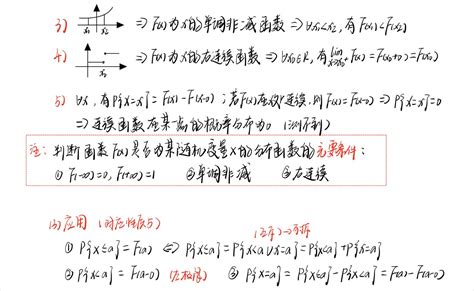 3) x₁ x₂ ⇒ F(x)为x的单调非减函数 ⇒ ∀x₁<x₂, 有F(x₁)<F(x₂)
4) x₀ ⇒ F(x)为x的右连续函数 ⇒ ∀x₀∈R, 有 lim x→x₀⁺ F(x)=F(x₀+0)=F(x₀)
5) ∀x, 有P{X=x}=F(x)-F(x-0); 若F(x)在x处连续, 则F(x)=F(x-0) ⇒ P{X=x}=0
⇒ 连续函数在某一点的概率分布为0
注: 判断函数F(x)是否为某随机变量X的分布函数的充要条件:
① F(-∞)=0, F(+∞)=1 ②单调非减 ③右连续
(3)应用 (对应性质5)
(互斥)→可拆
① P{X≤a}=F(a) ⇔ P{X≤a}=P{X<a∪X=a}=P{X<a}+P{X=a}
② P{X<a}=F(a-0) (左极限) ③ P{X=a}=P{X≤a}-P{X<a}=F(a)-F(a-0)